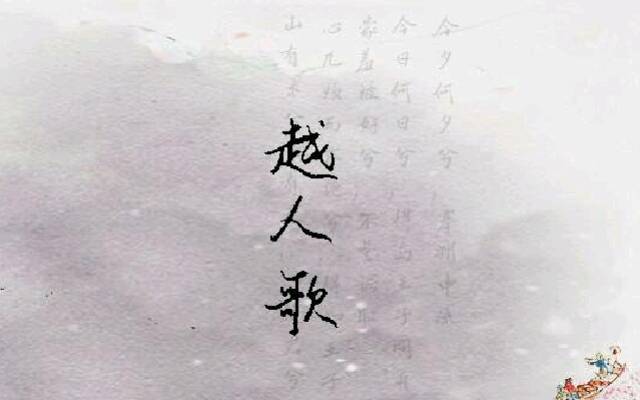 越人歌
今夕何夕兮,搴洲中流
今日何日兮,得与王子同舟
蒙羞被好兮,不訾诟耻
心几烦而 王子
山有木 兮